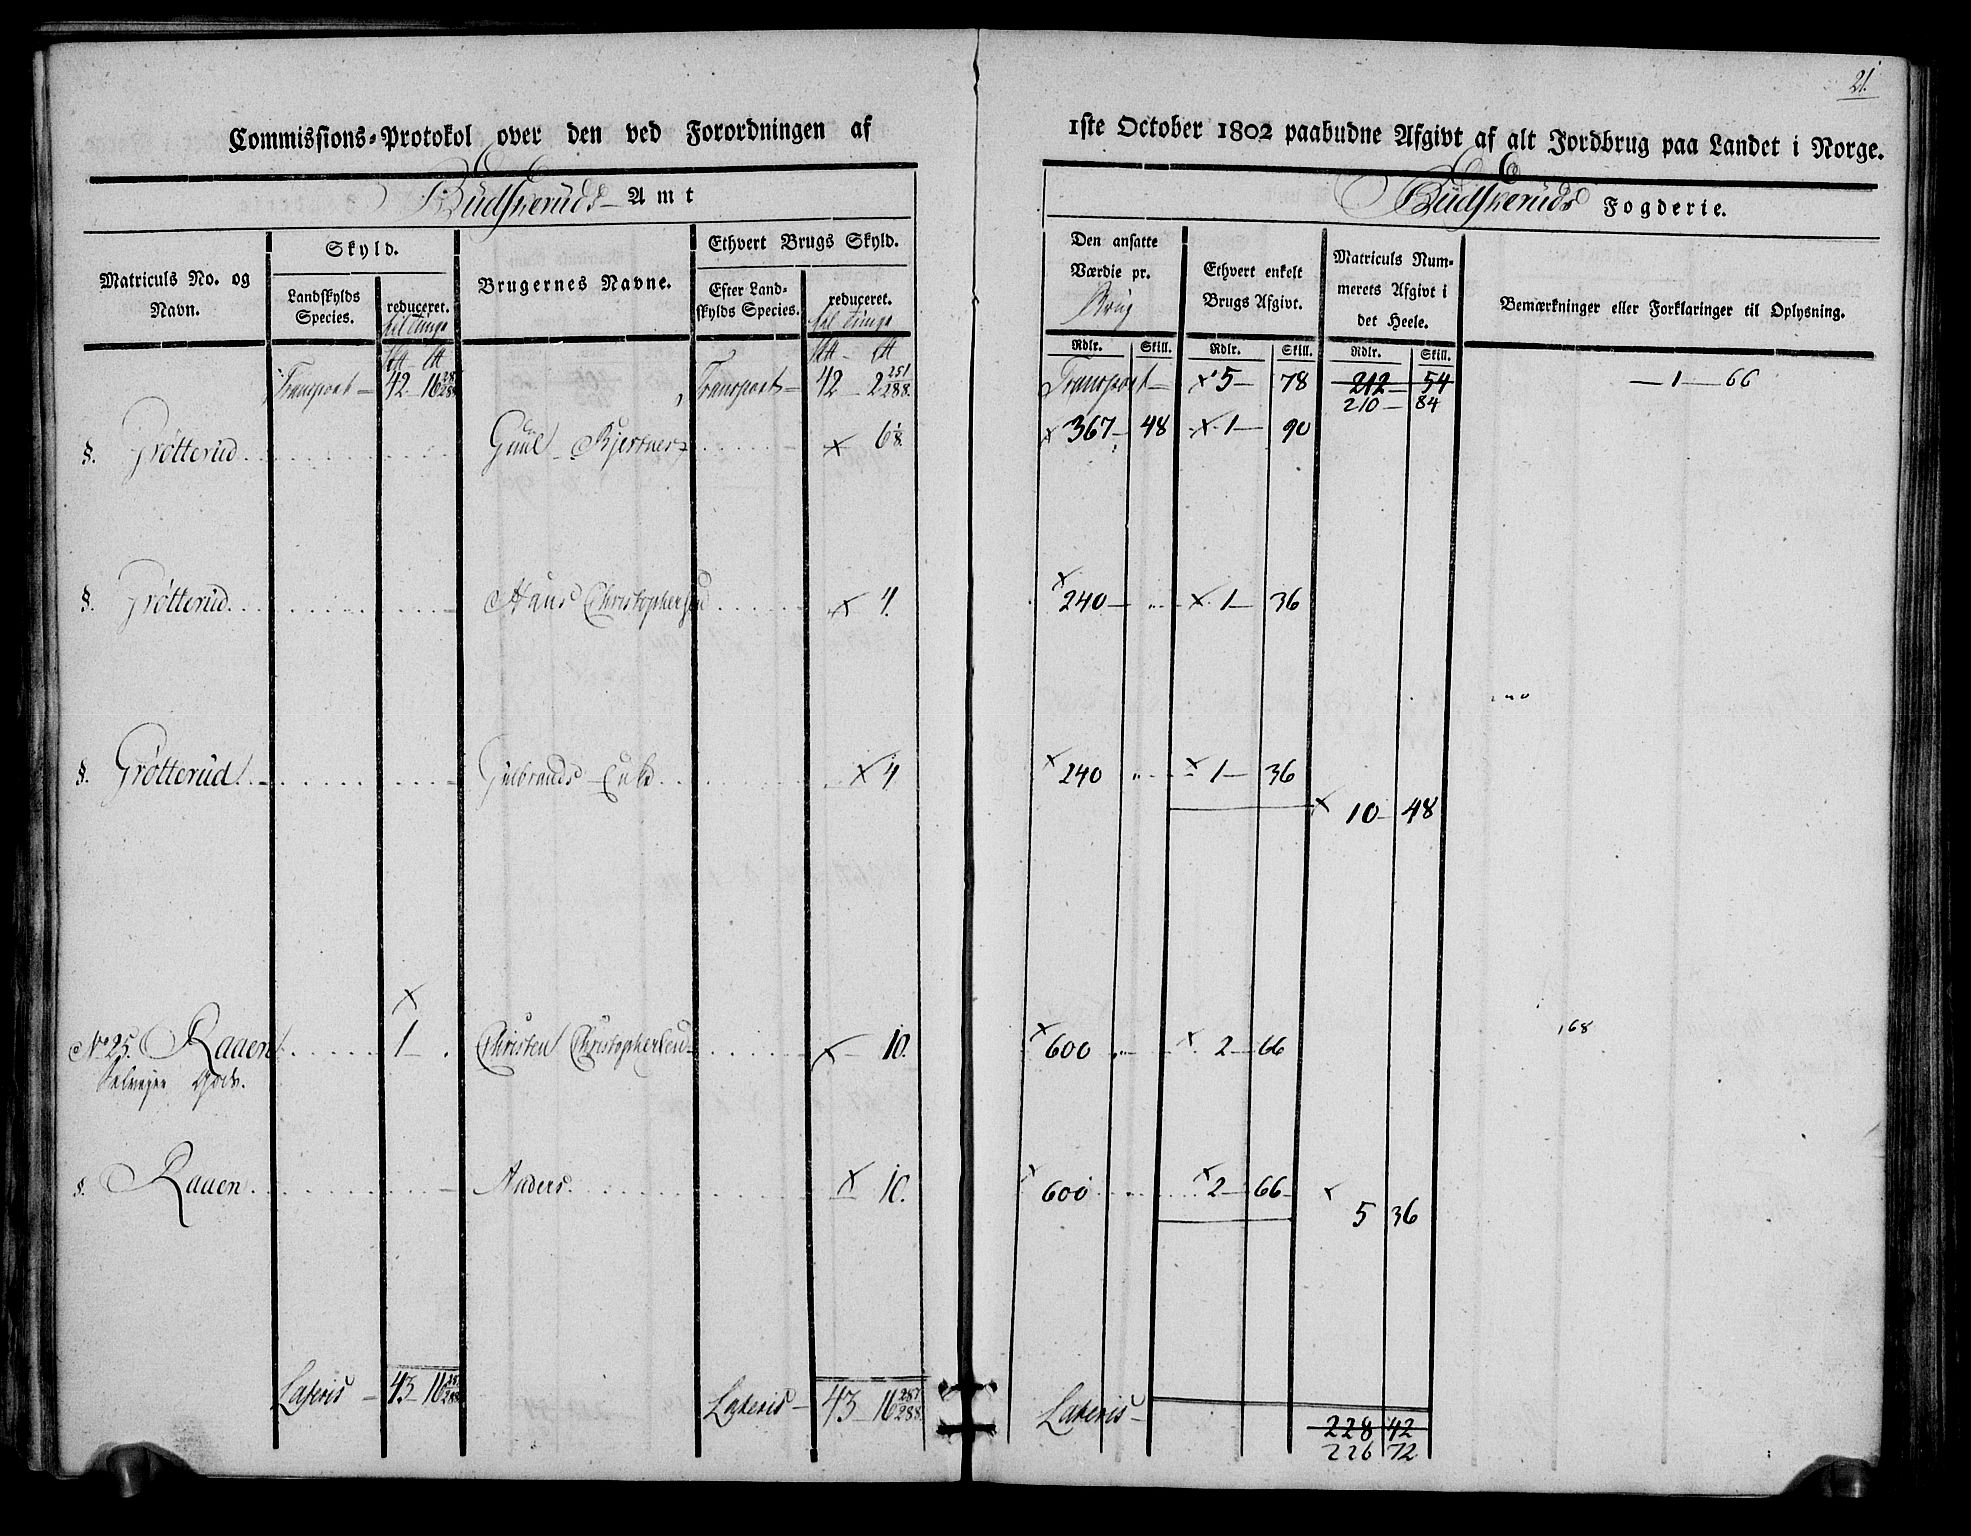 21.
Commissions-Protokol over den ved Forordningen af
1ste October 1802 paabudne Afgivt af alt Jordbrug paa Landet i Norge.
Budskeruds Amt
Budskeruds Fogderie.
Matriculs No. og Navn.
Skyld.
Landskylds Species.
reduceret.
Brugernes Navne.
Ethvert Brugs Skyld.
Efter Landskylds Species.
reduceret.
Den ansatte Værdie pr. Brug
Ethvert enkelt Brugs Afgivt.
Matriculs Nummerets Afgivt i det Heele.
Bemærkninger eller Forklaringer til Oplysning.
Rdlr. Skill. Rdlr. Skill. Rdlr. Skill.
Transport – 42 – 16 Transport – 42 – 2 251/288 Transport – x 5 – 78 212 – 54 – 1 – 66
210 – 84
§. Grøtterud Guul Bjertnes x 6 1/8 x 367 – 48 x 1 – 90
§. Grøtterud Hans Christophersen x 4. x 240 – „ x 1 – 36
§. Grøtterud Gulbrands Enke x 4 x 240 „ x 1 – 36
x 10 – 48
No 25. Raaen x 1 – Christen Christophersen x 10. x 600 „ x 2 – 66 168
Gods.
§. Raaen Anders x 10. x 600 x 2 – 66
x 5 36
Lateris – 43 – 16 287/288 Lateris – 43 – 16 287/288 Lateris – 228 42
226 72